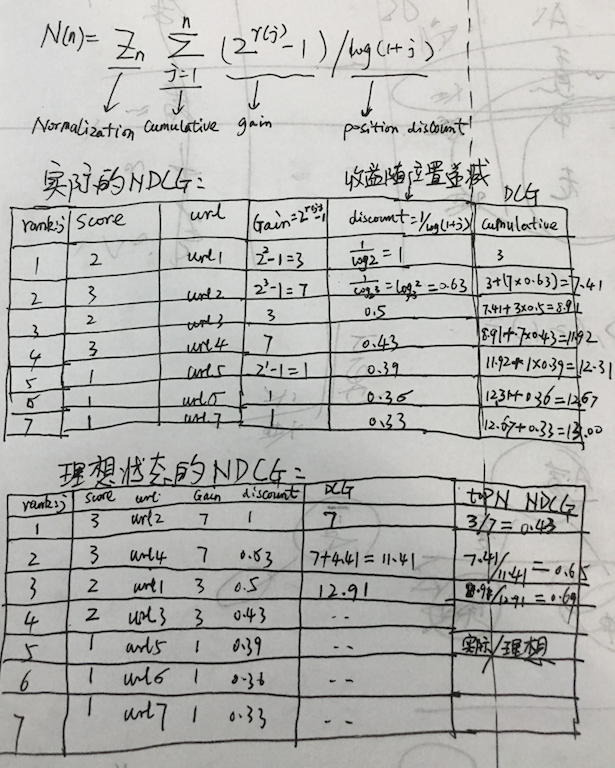 N(n) = Zn Σ n j=1 (2^r(j) - 1) / log(1+j)
Normalization cumulative gain position discount
实际的NDCG: 收益随位置递减 DCG
rank:j score url Gain=2^r(j)-1 discount=1/log(1+j) cumulative
1 2 url1 2²-1=3 1/log2 = 1 3
2 3 url2 2³-1=7 1/log3 = log2/log3 = 0.63 3+(7×0.63)=7.41
3 2 url3 3 0.5 7.41+3×0.5=8.91
4 3 url4 7 0.43 8.91+7×0.43=11.92
5 1 url5 2¹-1=1 0.39 11.92+1×0.39=12.31
6 1 url6 1 0.36 12.31+0.36=12.67
7 1 url7 1 0.33 12.67+0.33=13.00
理想状态的NDCG:
rank:j score url Gain discount DCG topN NDCG
1 3 url2 7 1 7 3/7 = 0.43
2 3 url4 7 0.63 7+4.41=11.41 7.41/11.41 = 0.65
3 2 url1 3 0.5 12.91 8.91/12.91 = 0.69
4 2 url3 3 0.43 --
5 1 url5 1 0.39 -- 实际/理想
6 1 url6 1 0.36 --
7 1 url7 1 0.33 --